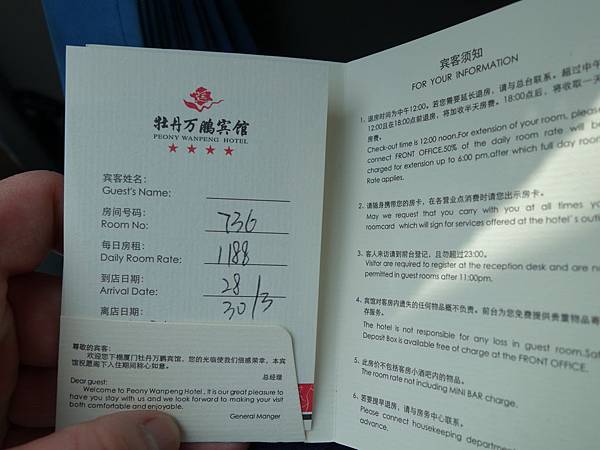 牡丹万鹏宾馆
PEONY WANPENG HOTEL
宾客姓名:
Guest's Name:
房间号码:
Room No: 736
每日房租:
Daily Room Rate: 1188
到店日期:
Arrival Date: 28/3
离店日期: 30
尊敬的宾客:
欢迎您下榻厦门牡丹万鹏宾馆, 您的光临使我们倍感荣幸, 本宾
馆祝愿阁下入住期间称心如意。
总经理
Dear guest:
Welcome to Peony Wanpeng Hotel , It is our great pleasure to
have you stay with us and we look forward to making your visit
both comfortable and enjoyable.
General Manger
宾客须知
FOR YOUR INFORMATION
1. 退房时间为中午12:00。若您需要延长退房, 请与总台联系。超过中午
12:00且在18:00点前退房, 将加收半天房费。18:00点后, 将收取一天
房费。
Check-out time is 12:00 noon.For extension of your room, please
connect FRONT OFFICE.50% of the daily room rate will be
charged for extension up to 6:00 pm.after which full day room
Rate applies.
2. 请随身携带您的房卡, 在各营业点消费时请您出示房卡。
May we request that you carry with you at all times yo
roomcard which will sign for services offered at the hotel's out
3. 客人来访请到前台登记, 且勿超过23:00。
Visitor are required to register at the reception desk and are no
permitted in guest rooms after 11:00pm.
4. 宾馆对客房内遗失的任何物品概不负责。前台为您免费提供贵重物品寄
存服务。
The hotel is not responsible for any loss in guest room.Saf
Deposit Box is available free of charge at the FRONT OFFICE.
5. 此房价不包括客房小酒吧内的物品。
The room rate not including MINI BAR charge.
6. 若要提早退房, 请与房务中心联系。
Please connect housekeeping departme
advance.